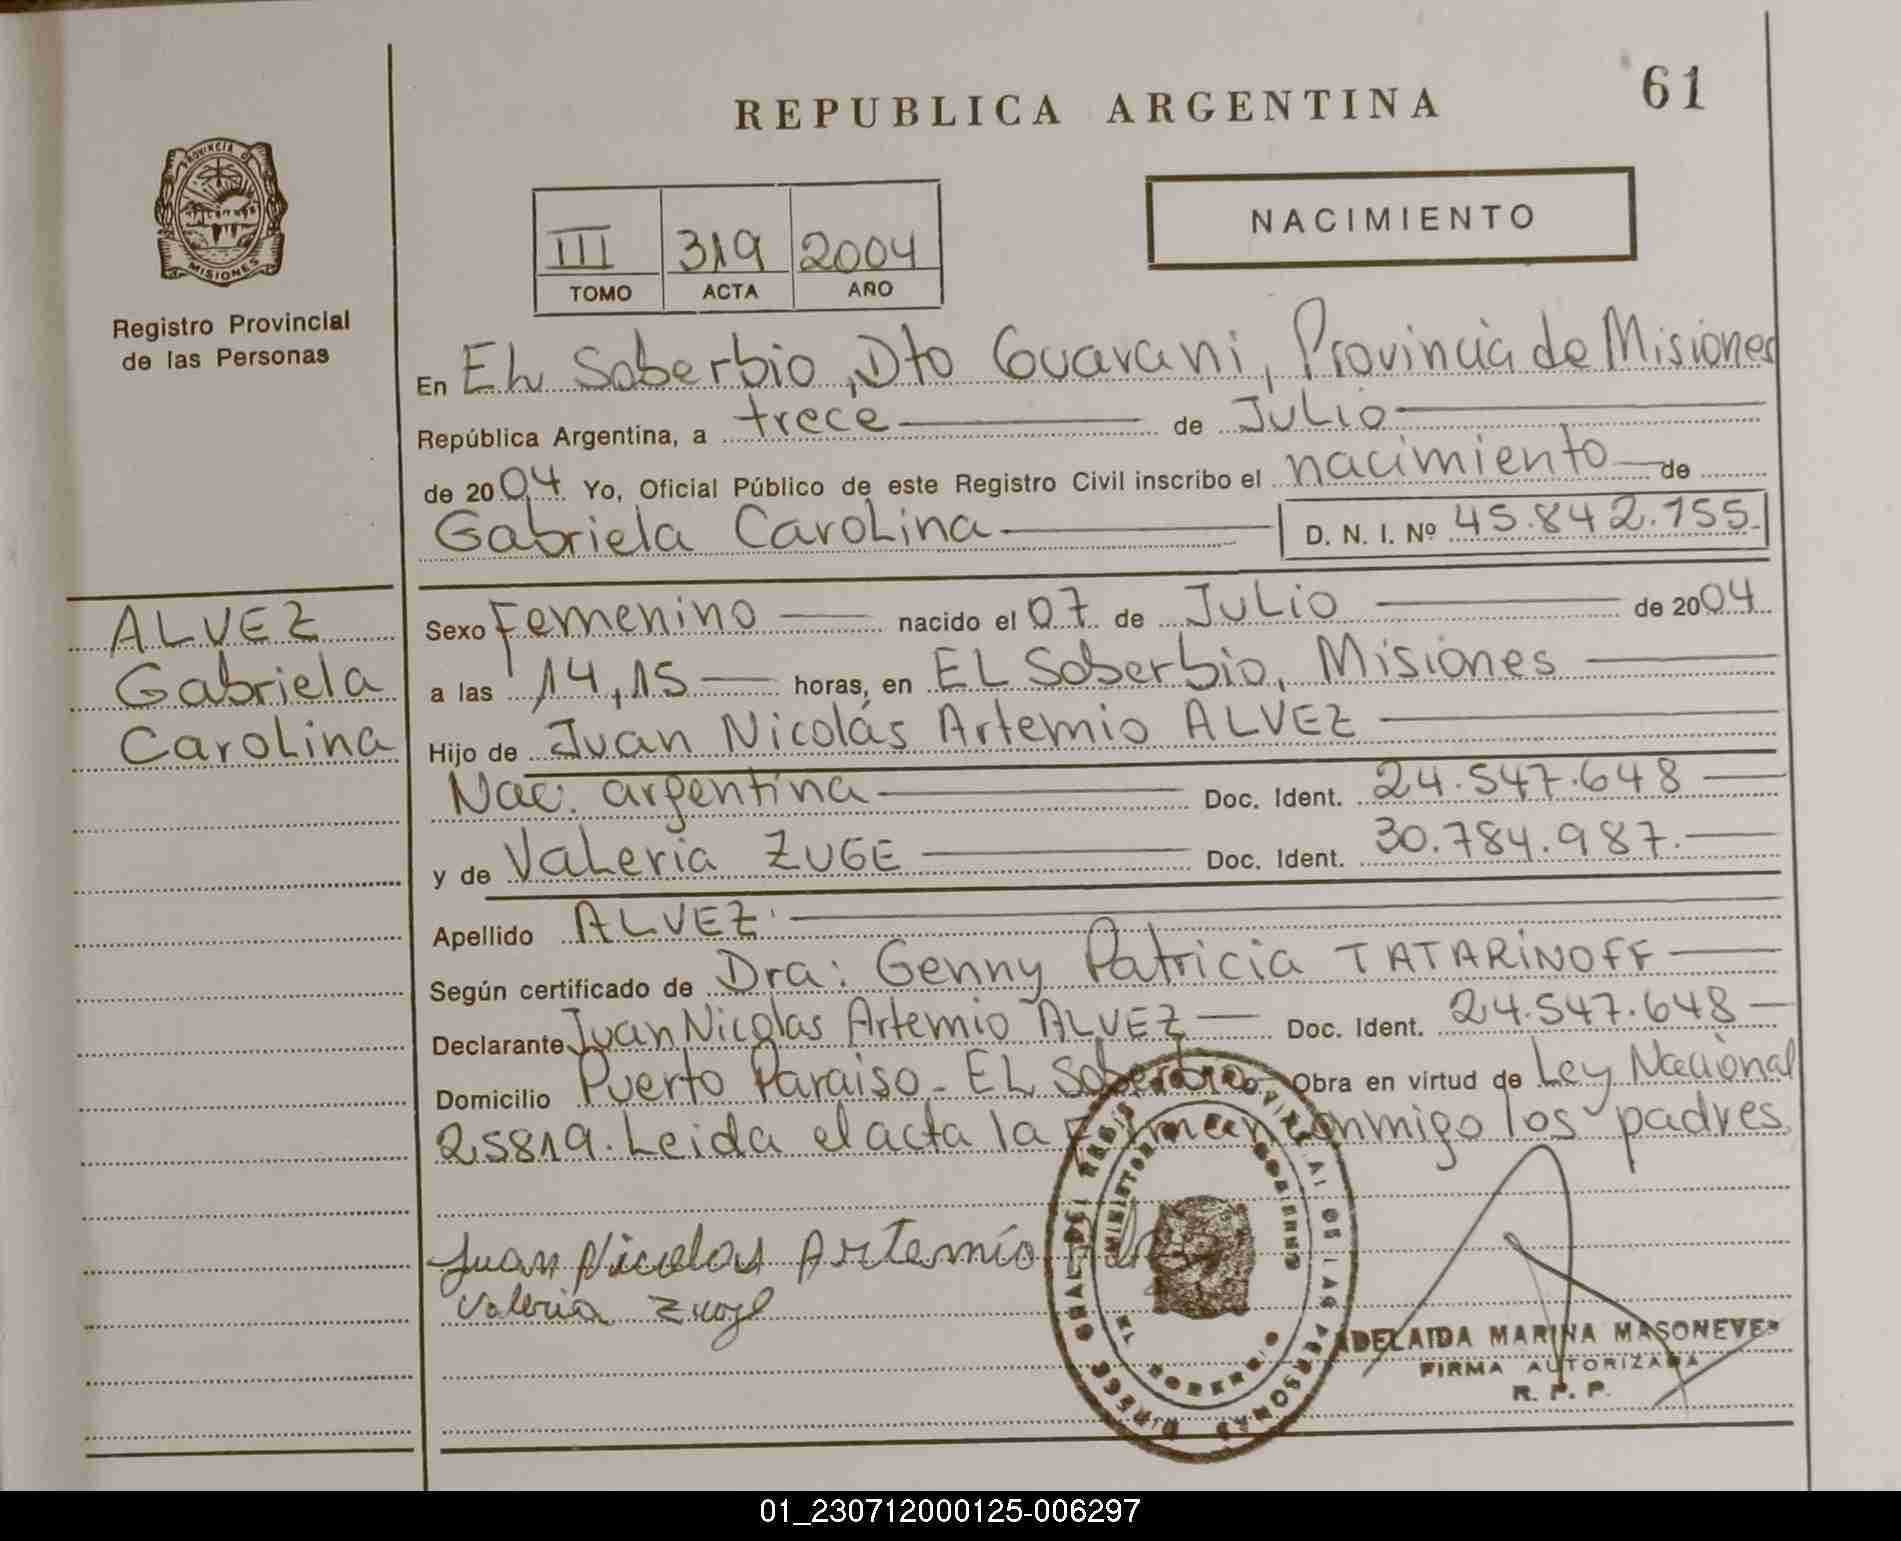 61
REPUBLICA ARGENTINA
PROVINCIA DE
MISIONES
Registro Provincial
de las Personas
III 319 2004
TOMO ACTA AÑO
NACIMIENTO
En EL Soberbio, Dto Guarani, Provincia de Misiones
República Argentina, a trece de Julio
de 2004 Yo, Oficial Público de este Registro Civil inscribo el nacimiento de
Gabriela Carolina D. N. I. Nº 45.842.155
ALVEZ
Gabriela
Carolina
Sexo Femenino nacido el 07 de Julio de 2004
a las 14,15 horas, en EL Soberbio, Misiones
Hijo de Juan Nicolás Artemio ALVEZ
Nac. argentina Doc. Ident. 24.547.648
y de Valeria ZUGE Doc. Ident. 30.784.987.
Apellido ALVEZ
Según certificado de Dra: Genny Patricia TATARINOFF
Declarante Juan Nicolas Artemio ALVEZ Doc. Ident. 24.547.648
Domicilio Puerto Paraiso - EL Soberbio Obra en virtud de Ley Nacional
25819. Leida el acta la Firman conmigo los padres
Juan Nicolas Artemio
Valeria Zuge
MINISTERIO DE GOBIERNO
ADELAIDA MARINA MASONEVES
FIRMA AUTORIZADA
R. P. P.
01_230712000125-006297